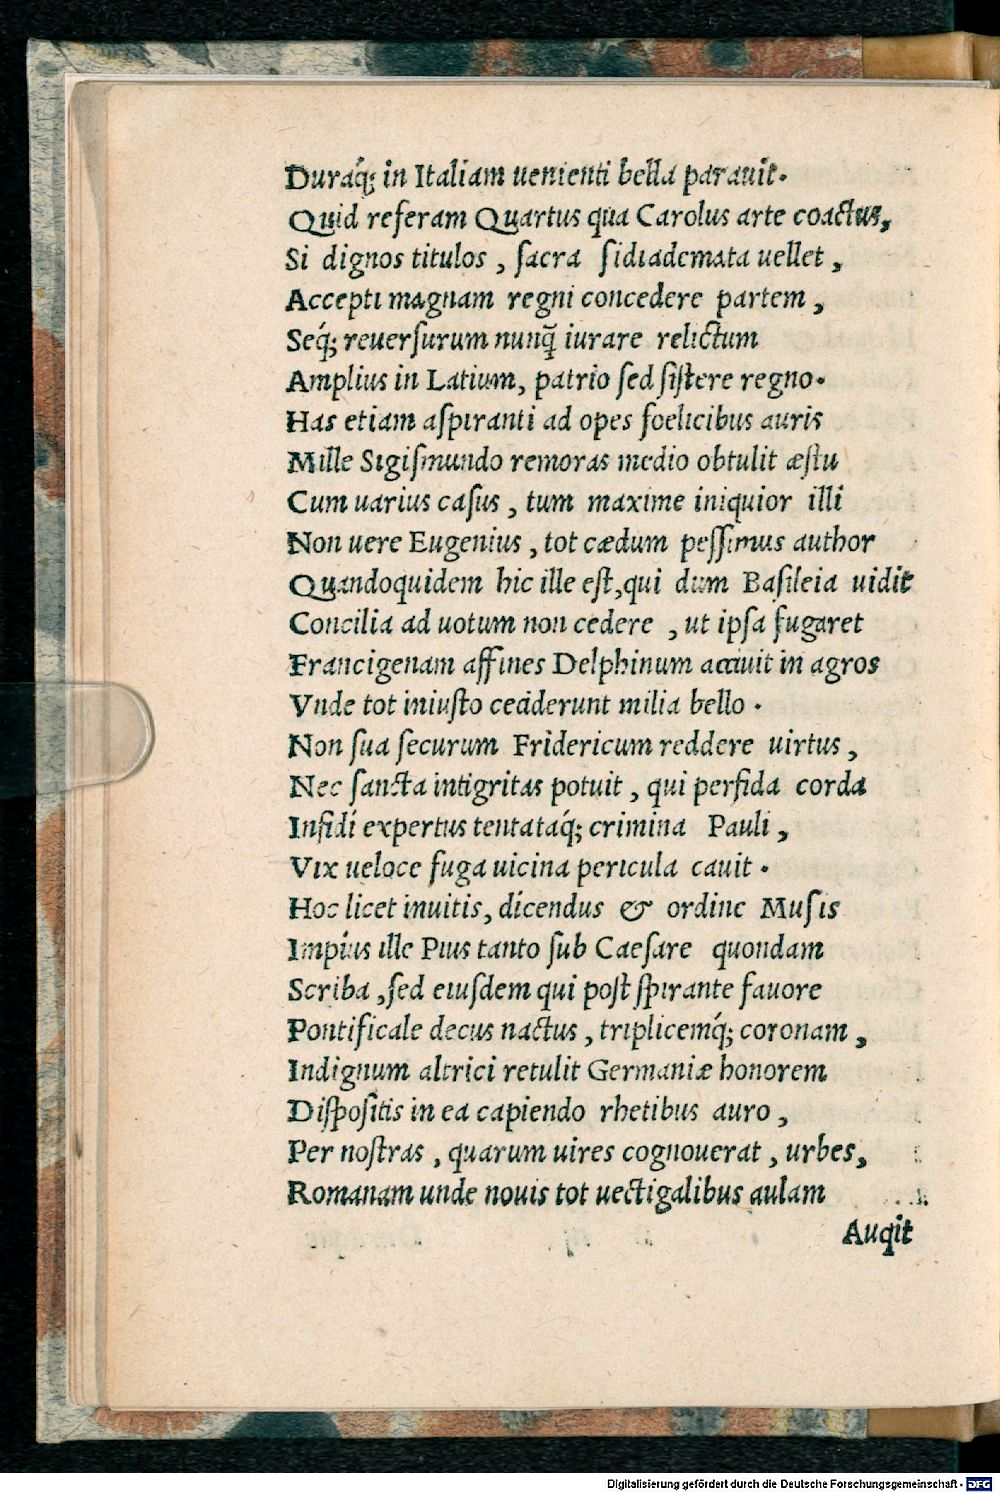 Duraq́; in Italiam uenienti bella parauit.
Quid referam Quartus qua Carolus arte coactus,
Si dignos titulos , ſacra ſidiademata uellet ,
Accepti magnam regni concedere partem ,
Seq́; reuerſurum nunq̃ iurare relictum
Amplius in Latium, patrio ſed ſiſtere regno.
Has etiam aſpiranti ad opes foelicibus auris
Mille Sigiſmundo remoras medio obtulit æſtu
Cum uarius caſus , tum maxime iniquior illi
Non uere Eugenius , tot cædum peſſimus author
Quandoquidem hic ille eſt,qui dum Baſileia uidit
Concilia ad uotum non cedere , ut ipſa fugaret
Francigenam affines Delphinum acciuit in agros
Vnde tot iniuſto ceciderunt milia bello .
Non ſua ſecurum Fridericum reddere uirtus ,
Nec ſancta intigritas potuit , qui perfida corda
Infidi expertus tentataq́; crimina Pauli ,
Vix ueloce fuga uicina pericula cauit .
Hoc licet inuitis, dicendus & ordine Muſis
Impius ille Pius tanto ſub Caeſare quondam
Scriba ,ſed eiuſdem qui poſt ſpirante fauore
Pontificale decus nactus , triplicemq́; coronam ,
Indignum altrici retulit Germaniæ honorem
Diſpoſitis in ea capiendo rhetibus auro ,
Per noſtras , quarum uires cognouerat , urbes,
Romanam unde nouis tot uectigalibus aulam
Auqit
Digitalisierung gefördert durch die Deutsche Forschungsgemeinschaft - DFG